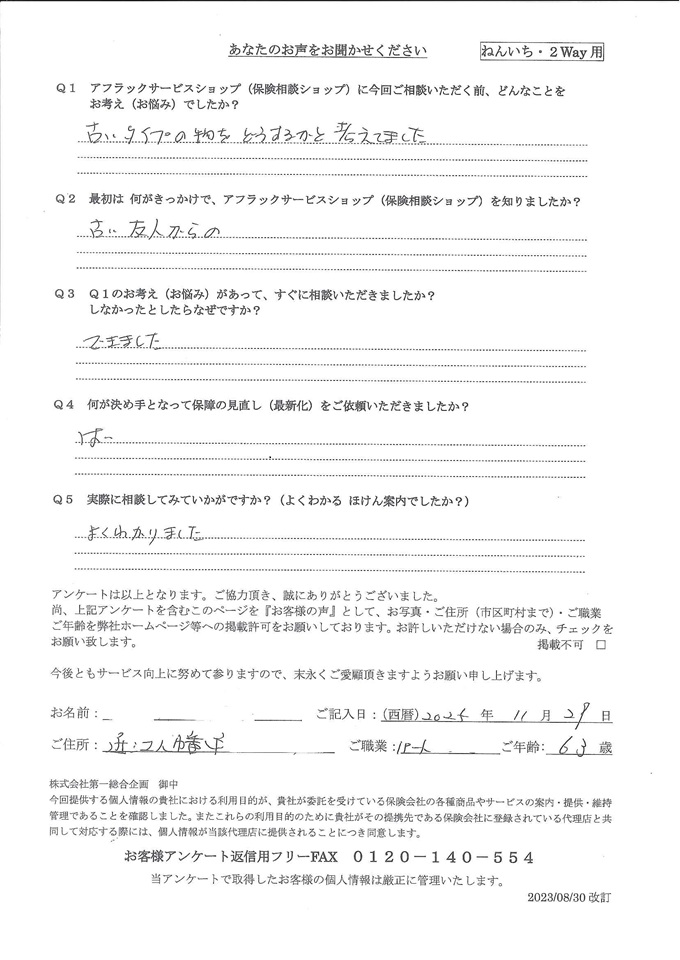 あなたのお声をお聞かせください
ねんいち・２Way 用
Ｑ１ アフラックサービスショップ（保険相談ショップ）に今回ご相談いただく前、どんなことを
お考え（お悩み）でしたか？
古いタイプの物をどうするかと考えてました
Ｑ２ 最初は 何がきっかけで、アフラックサービスショップ（保険相談ショップ）を知りましたか？
古い友人からの
Ｑ３ Ｑ１のお考え（お悩み）があって、すぐに相談いただきましたか？
しなかったとしたらなぜですか？
できました
Ｑ４ 何が決め手となって保障の見直し（最新化）をご依頼いただきましたか？
Ｑ５ 実際に相談してみていかがですか？（よくわかる ほけん案内でしたか？）
よくわかりました
アンケートは以上となります。ご協力頂き、誠にありがとうございました。
尚、上記アンケートを含むこのページを『お客様の声』として、お写真・ご住所（市区町村まで）・ご職業
ご年齢を弊社ホームページ等への掲載許可をお願いしております。お許しいただけない場合のみ、チェックを
お願い致します。 掲載不可 □
今後ともサービス向上に努めて参りますので、末永くご愛顧頂きますようお願い申し上げます。
お名前： ご記入日：(西暦) 2024 年 11 月 29 日
ご住所： 近江八幡市 ご職業：パート ご年齢： 63 歳
株式会社第一総合企画 御中
今回提供する個人情報の貴社における利用目的が、貴社が委託を受けている保険会社の各種商品やサービスの案内・提供・維持
管理であることを確認しました。またこれらの利用目的のために貴社がその提携先である保険会社に登録されている代理店と共
同して対応する際には、個人情報が当該代理店に提供されることにつき同意します。
お客様アンケート返信用フリーFAX ０１２０－１４０－５５４
当アンケートで取得したお客様の個人情報は厳正に管理いたします。
2023/08/30 改訂